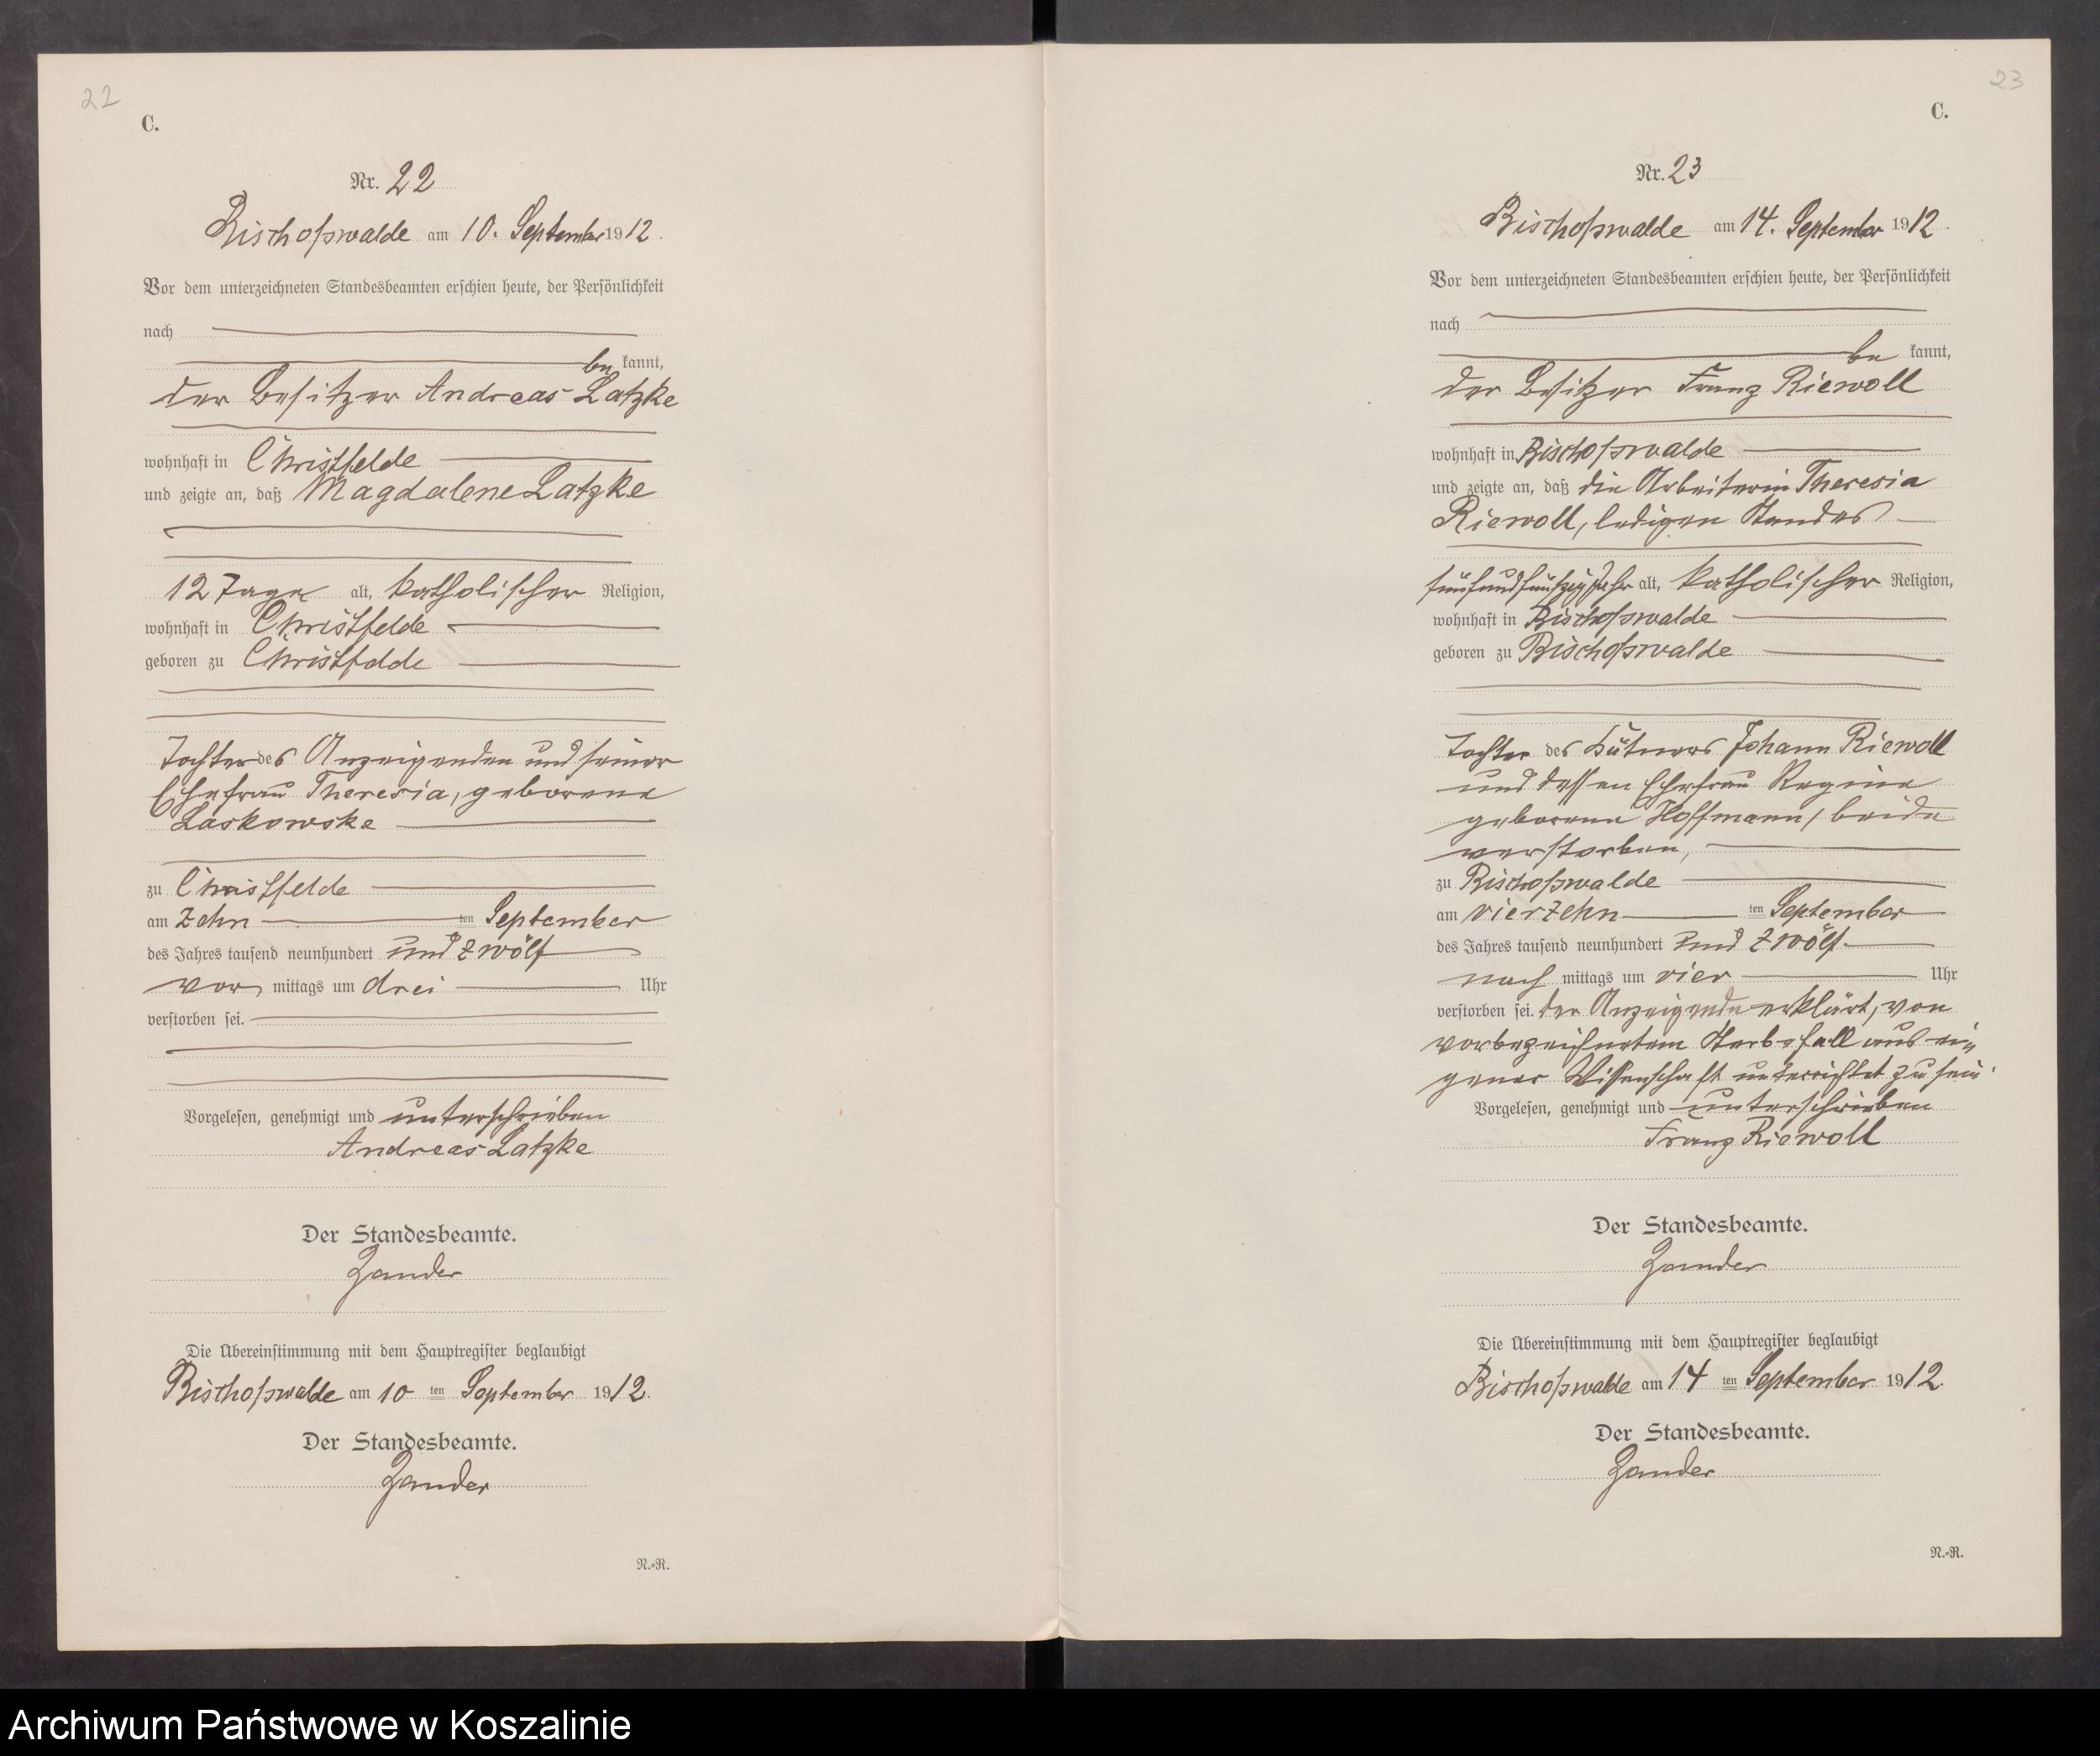 22
C.
Nr. 22
Bischofswalde am 10. September 1912.
Vor dem unterzeichneten Standesbeamten erschien heute, der Persönlichkeit
nach
be kannt,
der Besitzer Andreas Latzke
wohnhaft in Christfelde
und zeigte an, daß Magdalene Latzke
12 Tage alt, katholischer Religion,
wohnhaft in Christfelde
geboren zu Christfelde
Tochter des Anzeigenden und seiner
Ehefrau Theresia, geborene
Laskowske
zu Christfelde
am zehn ten September
des Jahres tausend neunhundert und zwölf
vor mittags um drei Uhr
verstorben sei.
Vorgelesen, genehmigt und unterschrieben
Andreas Latzke
Der Standesbeamte.
Zander
Die Übereinstimmung mit dem Hauptregister beglaubigt
Bischofswalde am 10 ten September 1912.
Der Standesbeamte.
Zander
N.-R.
23
C.
Nr. 23
Bischofswalde am 14. September 1912.
Vor dem unterzeichneten Standesbeamten erschien heute, der Persönlichkeit
nach
be kannt,
der Besitzer Franz Riewoll
wohnhaft in Bischofswalde
und zeigte an, daß die Arbeiterin Theresia
Riewoll, ledigen Standes
fünfundfünfzig Jahr alt, katholischer Religion,
wohnhaft in Bischofswalde
geboren zu Bischofswalde
Tochter des Kätners Johann Riewoll
und dessen Ehefrau Regine
geborene Hoffmann, beide
verstorben,
zu Bischofswalde
am vierzehn ten September
des Jahres tausend neunhundert und zwölf
nach mittags um vier Uhr
verstorben sei. Der Anzeigende erklärt, von
vorbezeichnetem Sterbefall aus ei-
gener Wissenschaft unterrichtet zu sein.
Vorgelesen, genehmigt und unterschrieben
Franz Riewoll
Der Standesbeamte.
Zander
Die Übereinstimmung mit dem Hauptregister beglaubigt
Bischofswalde am 14 ten September 1912.
Der Standesbeamte.
Zander
N.-R.
Archiwum Państwowe w Koszalinie